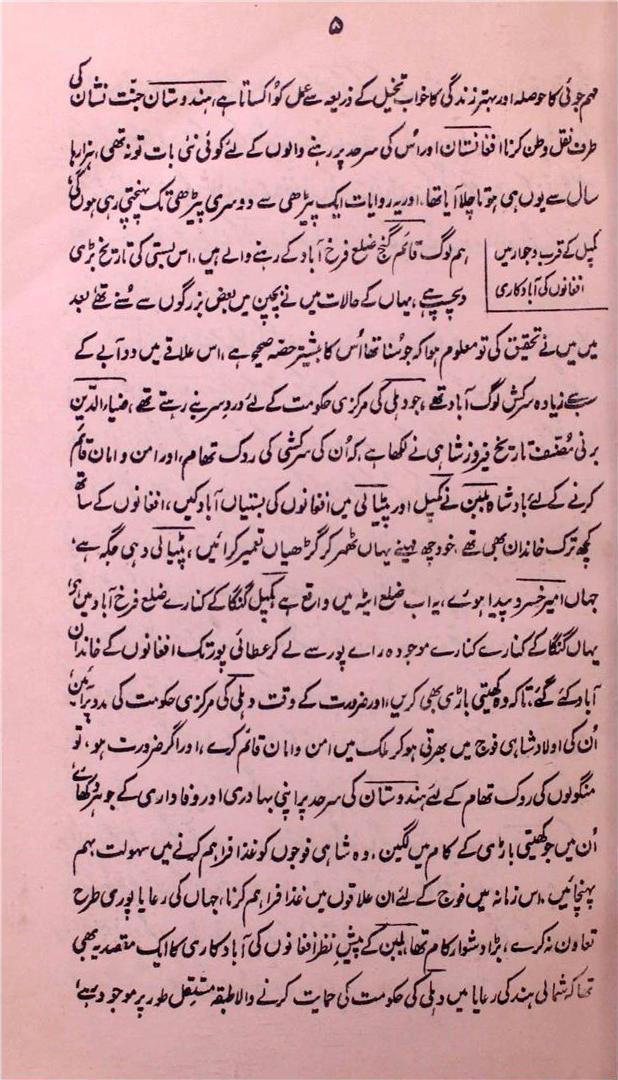 ۵
مہم جوئی کا حوصلہ اور بہتر زندگی کا خواب تخیل کے ذریعہ سے عمل کو اکساتا ہے، ہندوستان جنّت نشان کی
طرف نقل وطن کرنا افغانستان اور اُس کی سرحد پر رہنے والوں کے لئے کوئی نئی بات تو نہ تھی، ہزارہا
سال سے یوں ہی ہوتا چلا آیا تھا، اور یہ روایات ایک پیڑھی سے دوسری پیڑھی تک پہنچتی رہی ہوں گی،
کمپل کے قرب و جوار میں
افغانوں کی آبادکاری
ہم لوگ قائم گنج ضلع فرخ آباد کے رہنے والے ہیں، اس بستی کی تاریخ بڑی
دلچسپ ہے، یہاں کے حالات میں نے بچپن میں بعض بزرگوں سے سُنے تھے، بعد
میں میں نے تحقیق کی تو معلوم ہوا کہ جو سُنا تھا اُس کا بیشتر حصّہ صحیح ہے، اس علاقے میں دوآبے کے
سب سے زیادہ سرکش لوگ آباد تھے، جو دہلی کی مرکزی حکومت کے لئے دردِ سر بنے رہتے تھے، ضیار الدّین
برنی مُصنّف تاریخ فیروز شاہی نے لکھا ہے، کہ اُن کی سرکشی کی روک تھام، اور امن و امان قائم
کرنے کے لئے بادشاہ بلبن نے کمپل اور پٹیالی میں افغانوں کی بستیاں آباد کیں، افغانوں کے ساتھ
کچھ ترک خاندان بھی تھے، خود چھ مہینے یہاں ٹھہر کر گڑھیاں تعمیر کرائیں، پٹیالی وہی جگہ ہے،
جہاں امیر خسرو پیدا ہوئے، یہ اب ضلع ایٹہ میں واقع ہے، کمپل گنگا کے کنارے ضلع فرخ آباد میں ہے،
یہاں گنگا کے کنارے کنارے موجودہ رائے پور سے لے کر عطائی پور تک افغانوں کے خاندان
آباد کئے گئے، تاکہ وہ کھیتی باڑی بھی کریں، اور ضرورت کے وقت دہلی کی مرکزی حکومت کی مدد پر آئیں،
اُن کی اولاد شاہی فوج میں بھرتی ہو کر ملک میں امن و امان قائم کرے، اور اگر ضرورت ہو، تو
منگولوں کی روک تھام کے لئے ہندوستان کی سرحد پر اپنی بہادری اور وفاداری کے جوہر دکھائے،
اُن میں جو کھیتی باڑی کے کام میں لگیں، وہ شاہی فوجوں کو غذا فراہم کرنے میں سہولت بہم
پہنچائیں، اس زمانہ میں فوج کے لئے ان علاقوں میں غذا فراہم کرنا، جہاں کی رعایا پوری طرح
تعاون نہ کرے، بڑا دشوار کام تھا، بلبن کے پیشِ نظر افغانوں کی آبادکاری کا ایک مقصد یہ بھی
تھا کہ شمالی ہند کی رعایا میں دہلی کی حکومت کی حمایت کرنے والا طبقہ مستقل طور پر موجود رہے،